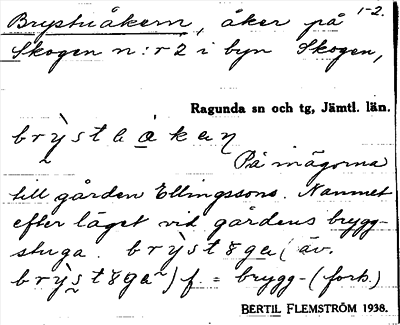 Brystuåkern, åker på 1-2.
Skogen n:r 2 i byn Skogen,
Ragunda sn och tg, Jämtl. län.
På inägorna
till gården Ellingssons. Namnet
efter läget vid gårdens brygg-
stuga. brỳstȣga (äv.
brỳstȣga) f. = brygg- (fork.)
BERTIL FLEMSTRÖM 1938.